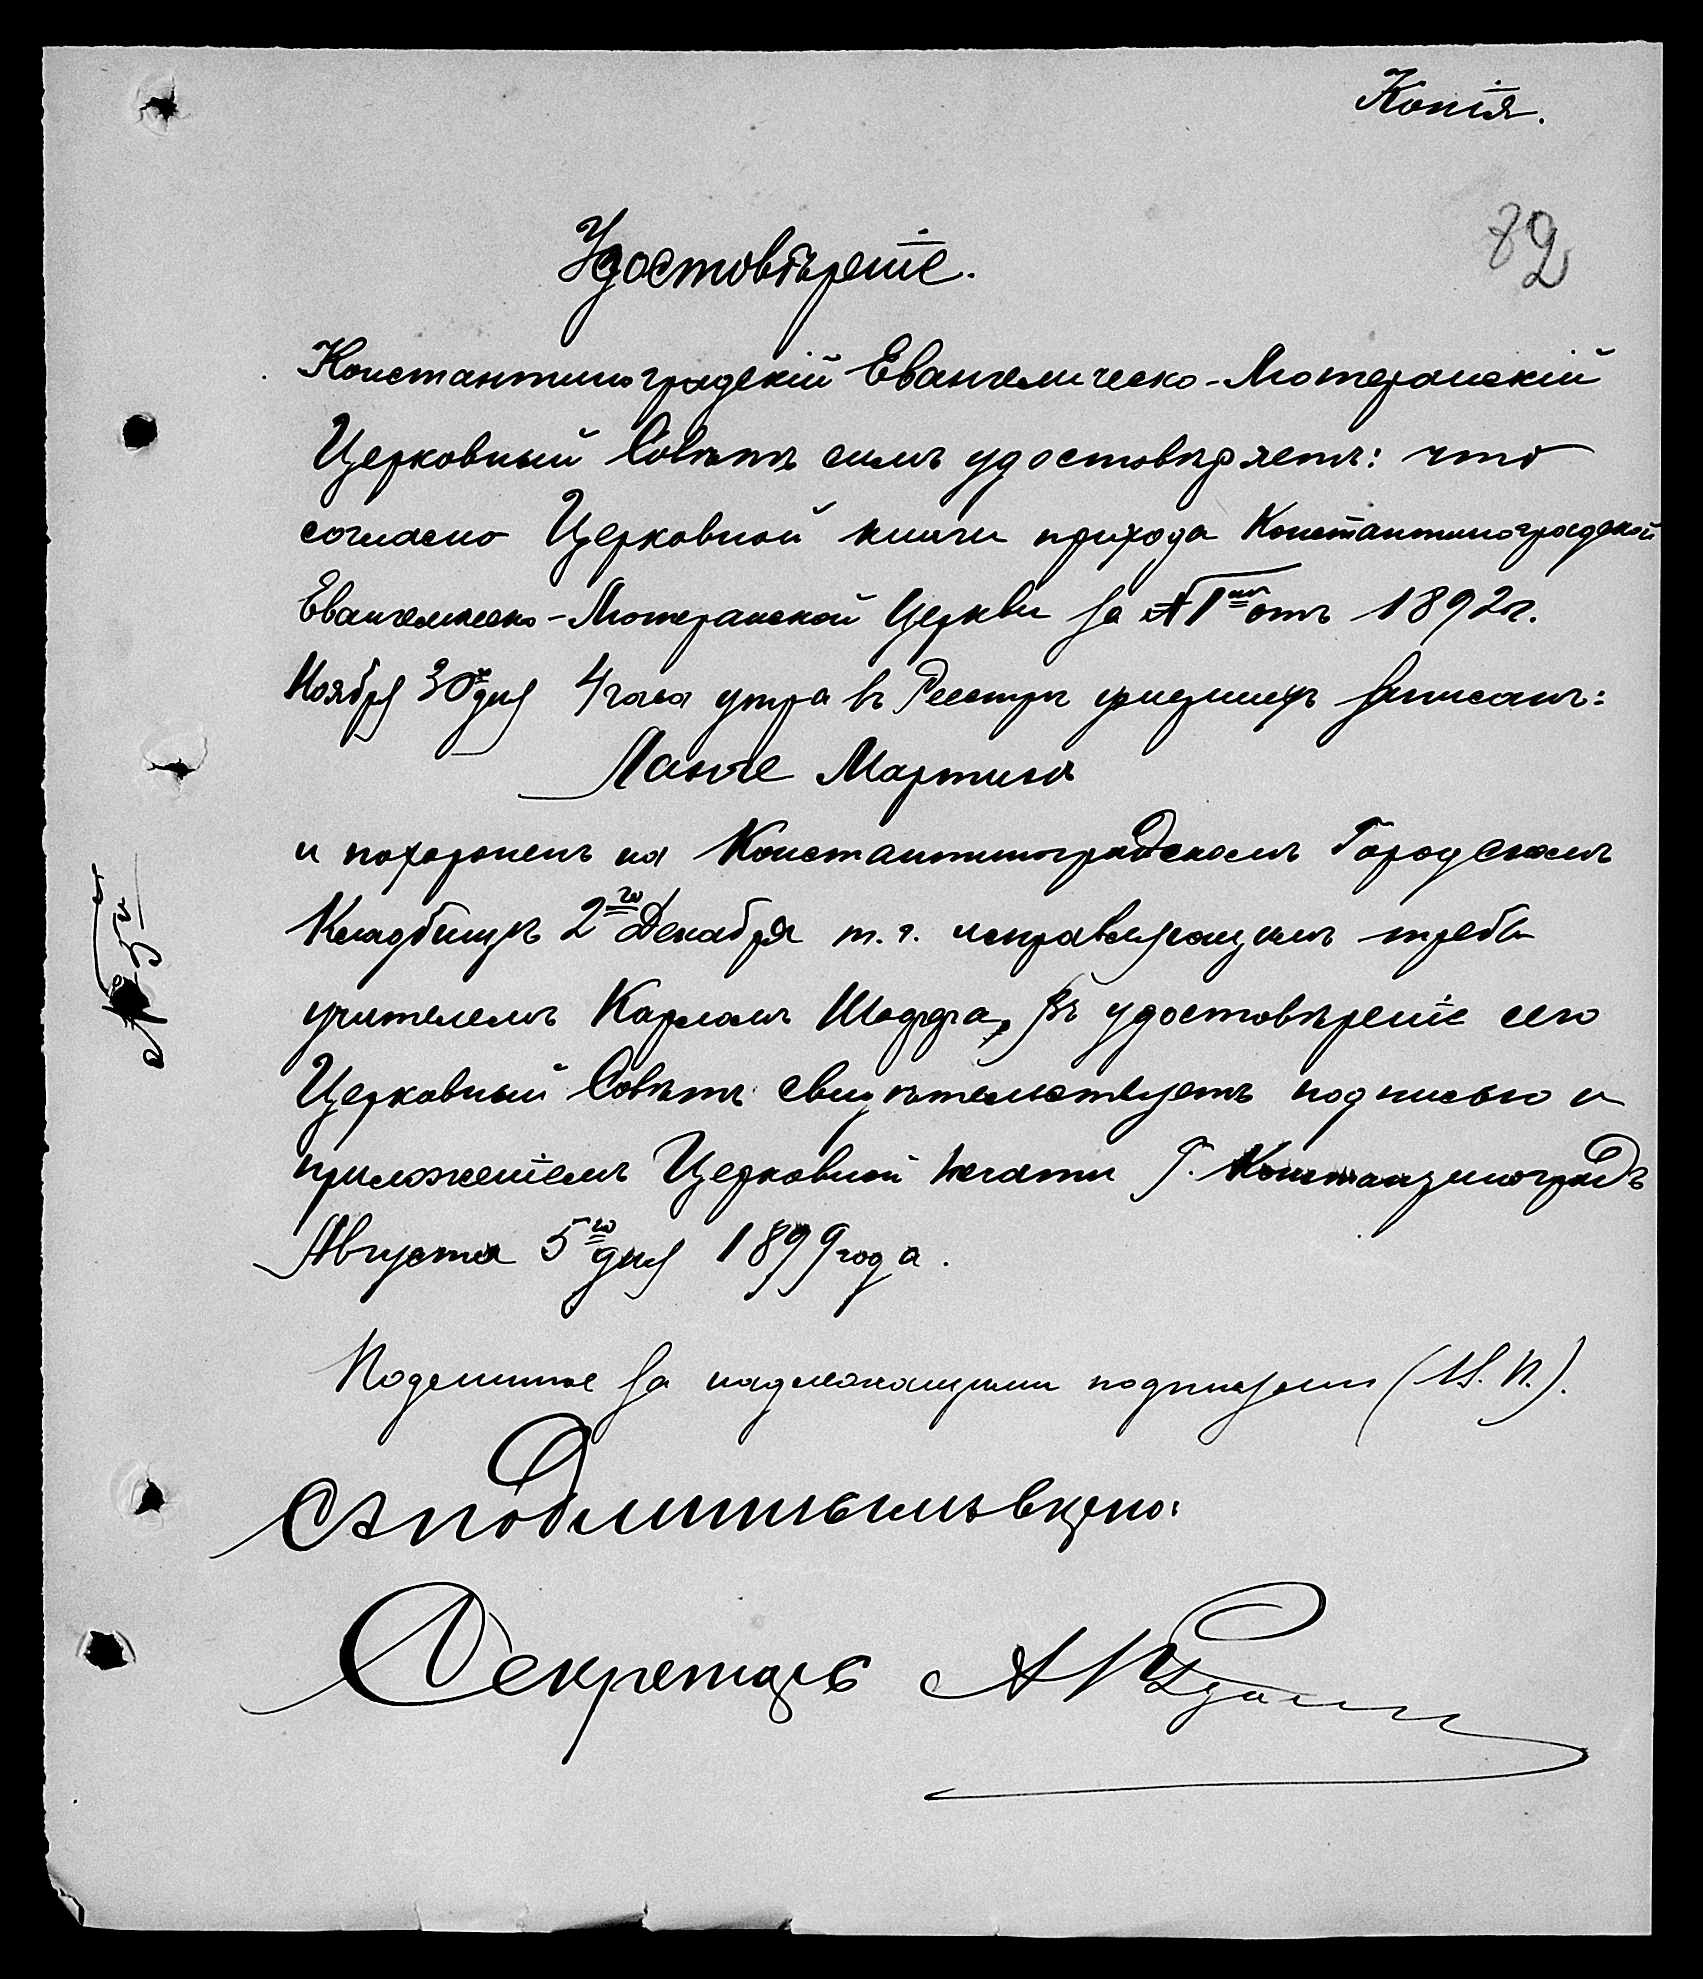 Копія.
82
Удостовѣреніе.
Константиноградскій Евангелическо-Лютеранскій
Церковный Совѣтъ симъ удостовѣряетъ: что
согласно Церковной книги прихода Константиноградской
Евангелическо-Лютеранской Церкви за № 1 отъ 1892 г.
Ноября 30 дня 4 часа утра въ Реестръ умершихъ записанъ:
Ланге Мартинъ
и похороненъ на Константиноградскомъ Городскомъ
Кладбищѣ 2го Декабря т. г. исправляющимъ требы
учителемъ Карломъ Шоффа, въ удостовѣреніе сего
Церковный Совѣтъ свидѣтельствуетъ подписью и
приложеніемъ Церковной печати Г. Константиноградъ
Августа 5го дня 1899 года.
Подлинное за надлежащими подписями (М. П.).
Съ подлиннымъ вѣрно:
Секретарь А